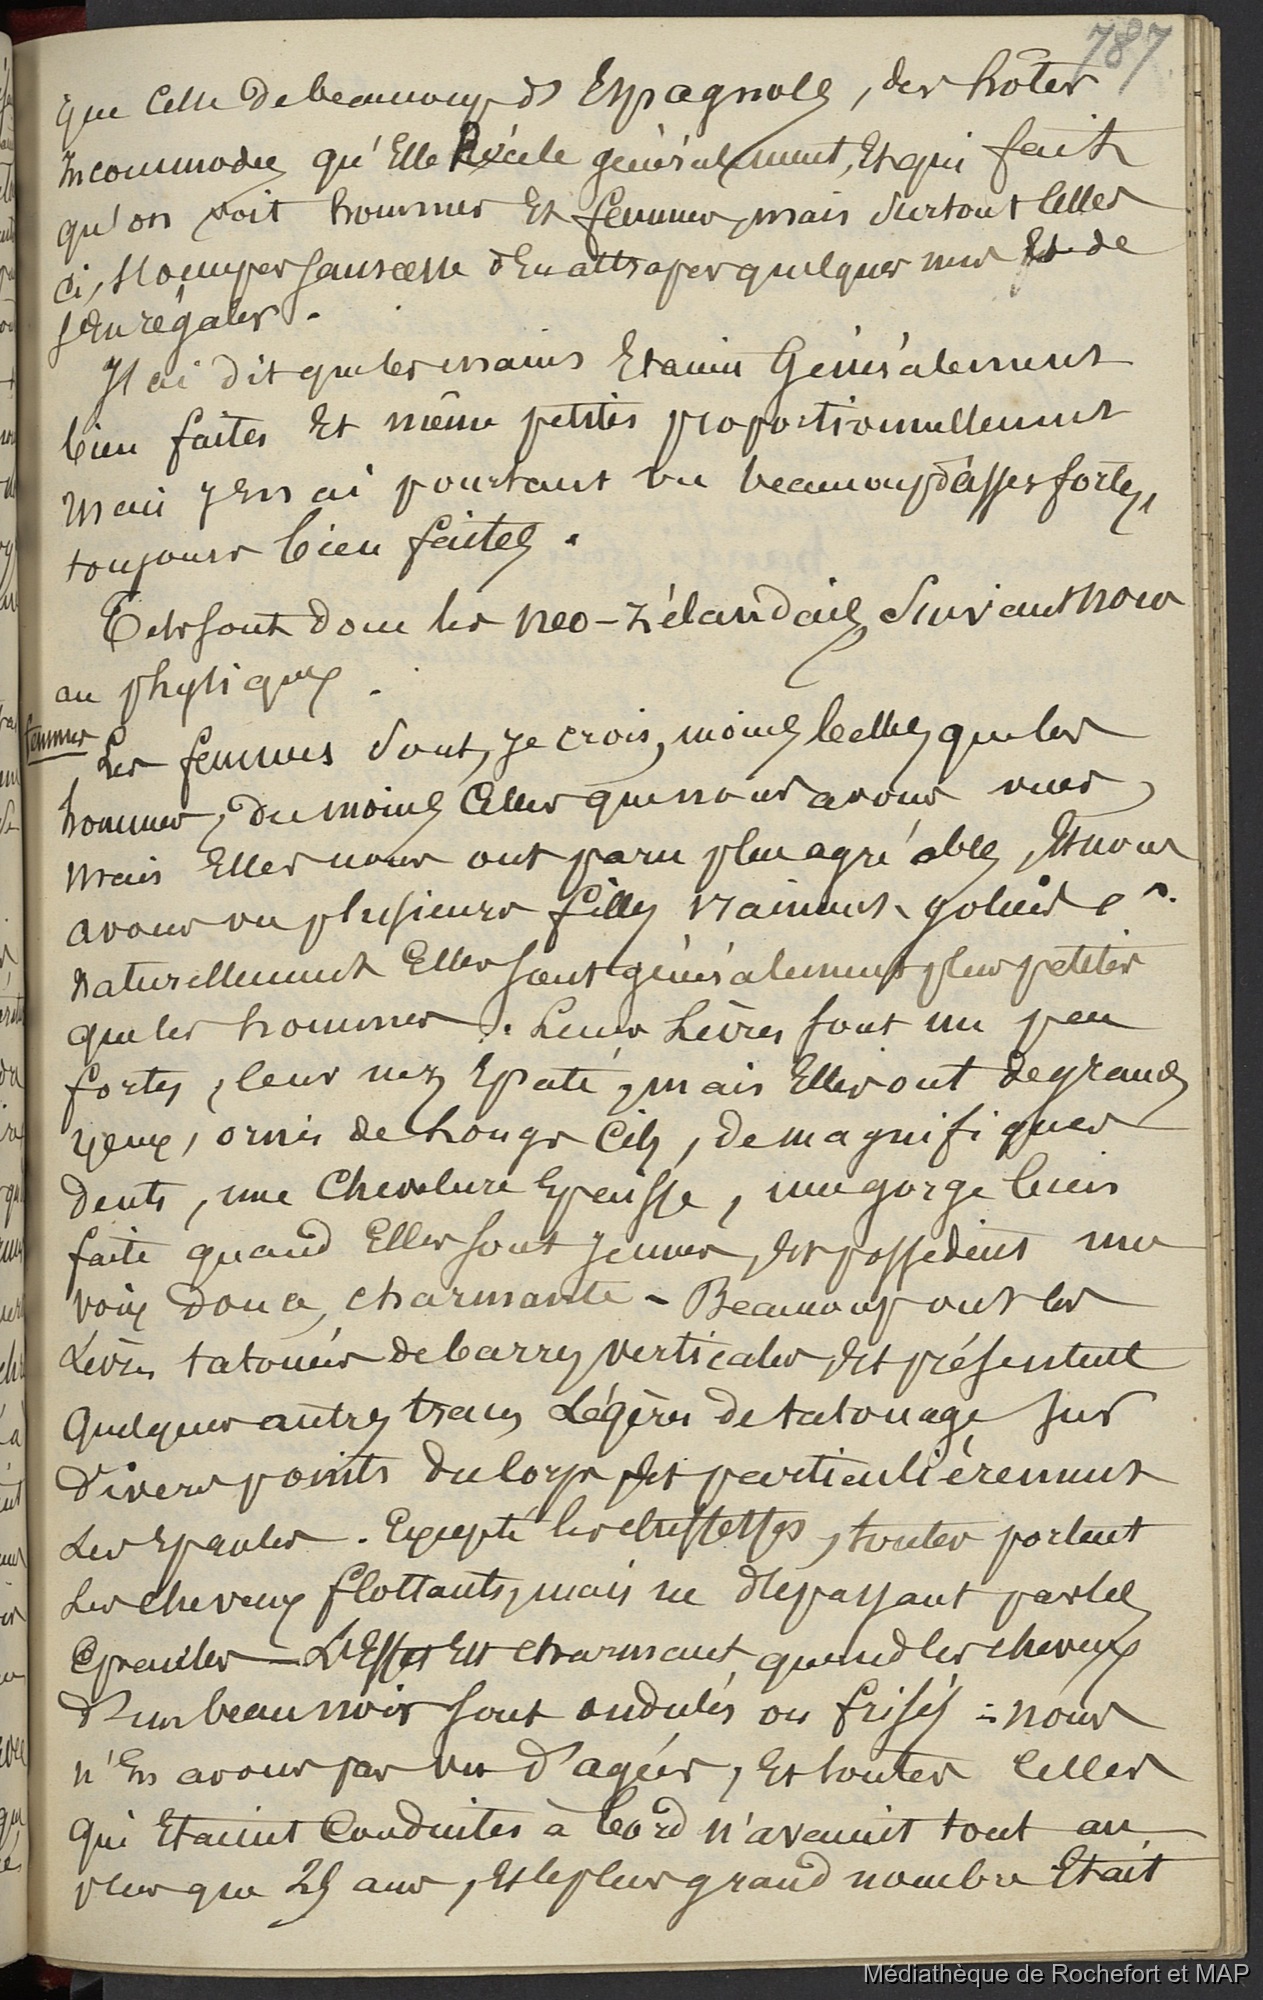 787
que celle de beaucoup d'Espagnols, des hôtes
incommodes qu'Elle Récèle généralement, Et qui fait
qu'on voit hommes Et femmes, mais surtout celles
ci, s'occuper sans cesse d'En attraper quelques uns Et de
s'En régaler.
J'ai dit que les mains Etaient Généralement
bien faites Et même petites proportionnellement
mais j'En ai pourtant vu beaucoup d'assez fortes,
toujours bien faites.
Tels sont donc les neo-zélandais suivant nous
au physique.
femmes
Les femmes sont, je crois, moins belles que les
hommes, du moins Celles que nous avons vues,
mais Elles nous ont paru plus agréables, Et nous
avons vu plusieurs filles vraiment jolies
Naturellement Elles sont généralement plus petites
que les hommes. Leurs Lèvres sont un peu
fortes, leur nez Epaté, mais Elles ont de grands
yeux, ornés de longs Cils, de magnifiques
dents, une Chevelure Epaisse, une gorge bien
faite quand Elles sont jeunes, Et possèdent une
voix douce, charmante - Beaucoup ont les
Lèvres tatouées de barres verticales, Et présentent
Quelques autres traces Légères de tatouage sur
divers points du Corps Et particulièrement
Les Epaules. Excepté les cheffesses, toutes portent
Les cheveux flottants, mais ne dépassant pas les
Epaules - L'Effet Est charmant quand les cheveux
d'un beau noir sont ondulés ou frisés - nous
n'En avons pas vu d'agées, Et toutes Celles
qui Etaient Conduites à bord n'avaient tout au
plus que 25 ans, Et le plus grand nombre Etait
Médiathèque de Rochefort et MAP